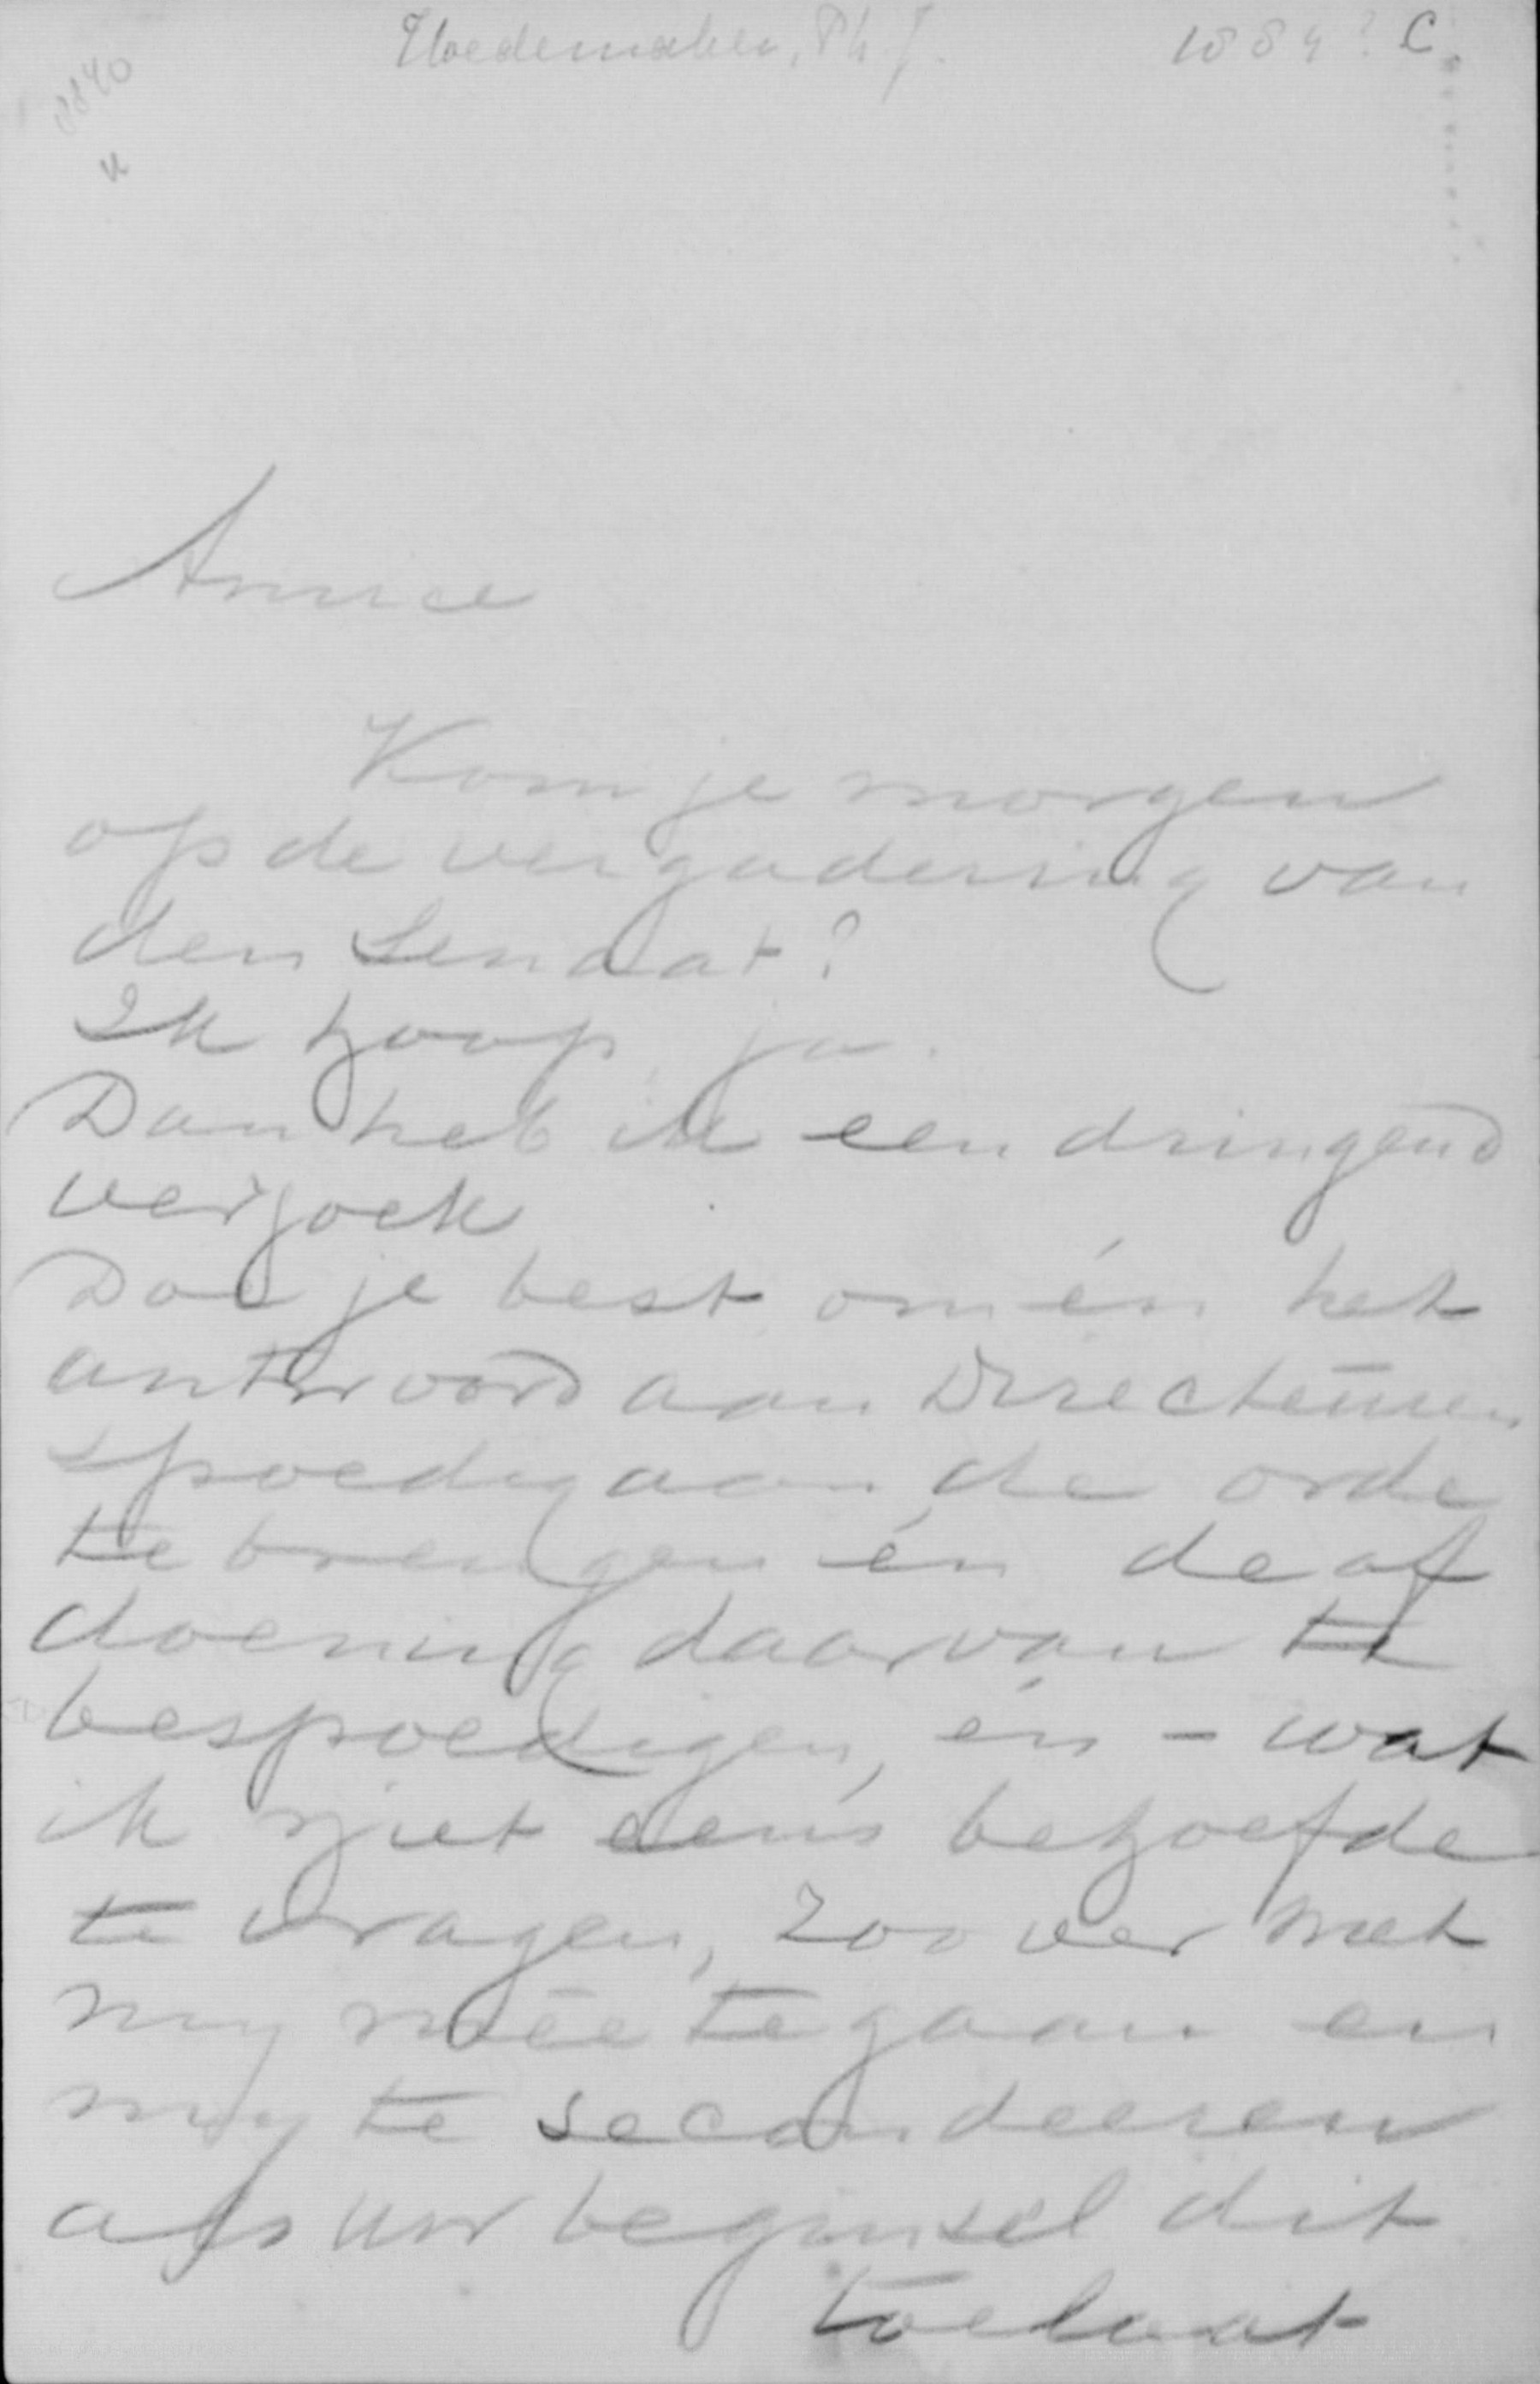 Hoedemaker, Ph J. 1884? C.
8840
Amice
Kom je morgen
op de vergadering van
den Senaat?
Ik hoop, ja.
Dan heb ik een dringend
verzoek
Doe je best om én het
antwoord aan Directeuren
spoedig aan de orde
te brengen én de af
doening daarvan te
bespoedigen, én - wat
ik niet eens behoefde
te vragen, zoover met
my meê te gaan en
my te secondeeren
als uw beginsel dit
toelaat